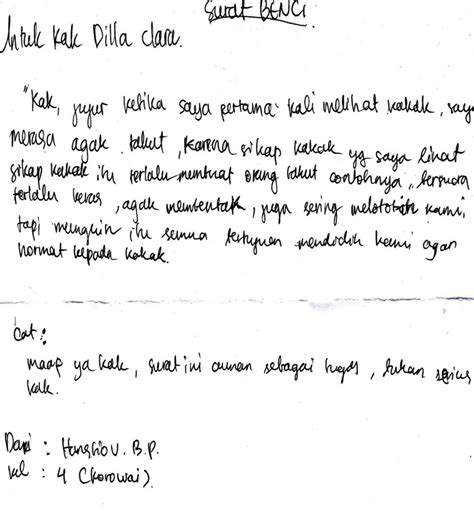 Surat BENCI
Untuk Kak Dilla Clara.
"Kak, jujur ketika saya pertama kali melihat kakak, saya
merasa agak takut, karena sikap kakak yg saya lihat
sikap kakak itu terlalu membuat orang takut contohnya, bersuara
terlalu keras, agak membentak, juga sering melototin kami,
tapi mungkin itu semua bertujuan mendidik kami agar
hormat kepada kakak.
Cat :
maap ya kak, surat ini cuman sebagai tugas, bukan serius
kak.
Dari : B.P.
kel : 4 (korowai)